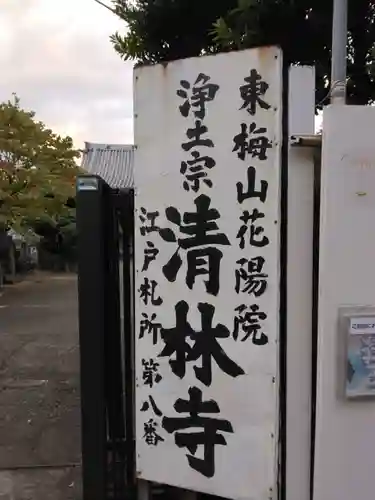 東梅山花陽院
浄土宗
清林寺
江戸札所第八番